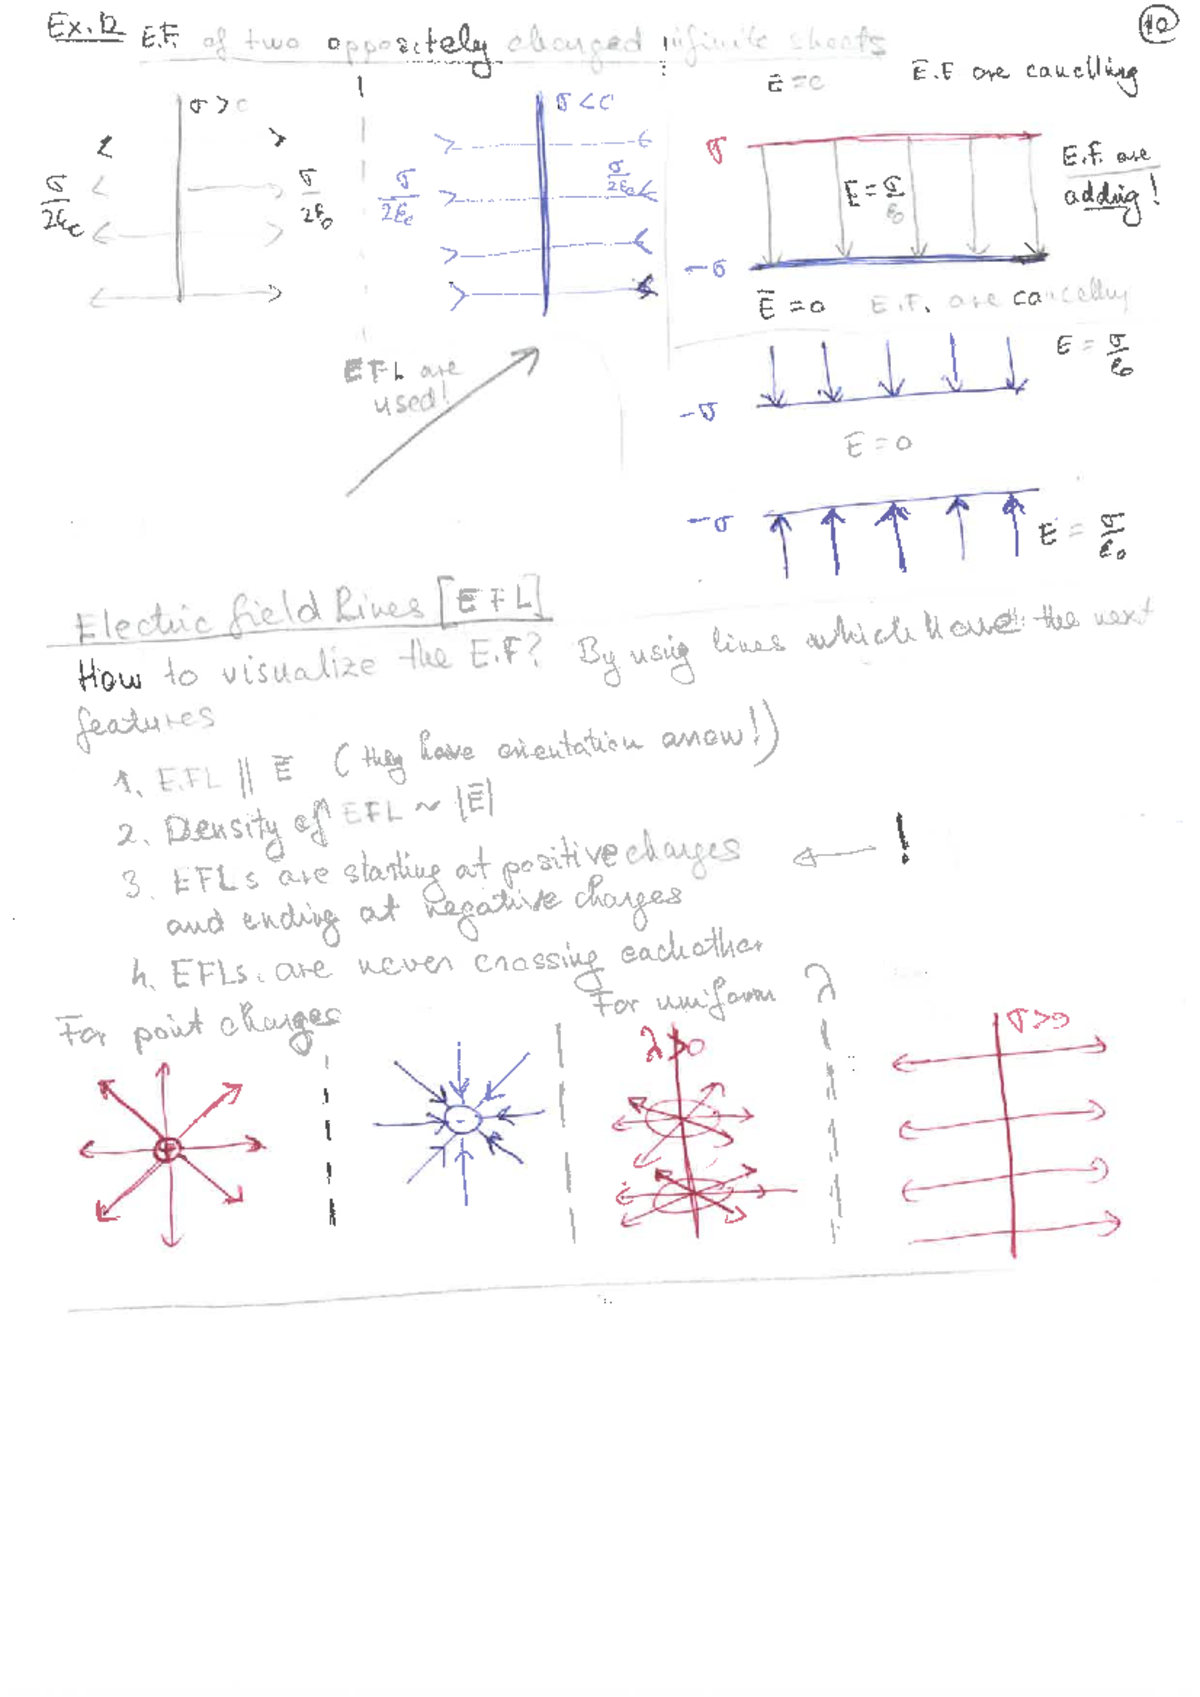 Ex.12 E.F. of two oppositely charged infinite sheets
10
σ > 0
σ/2ε₀
σ/2ε₀
σ < 0
σ/2ε₀
σ/2ε₀
EFL are
used!
Ē = 0
E.F are cancelling
σ
E = σ/ε₀
E.F. are
adding!
-σ
Ē = 0 E.F. are cancelling
E = σ/ε₀
-σ
Ē = 0
-σ
E = σ/ε₀
Electric field Lines [EFL]
How to visualize the E.F? By using lines which have the next
features
1. E.FL || Ē (they have orientation arrow!)
2. Density of EFL ~ |Ē|
3. EFLs are starting at positive charges
and ending at negative charges
!
4. EFLs are never crossing eachother
For point charges
For uniform λ
+
-
λ>0
σ>0